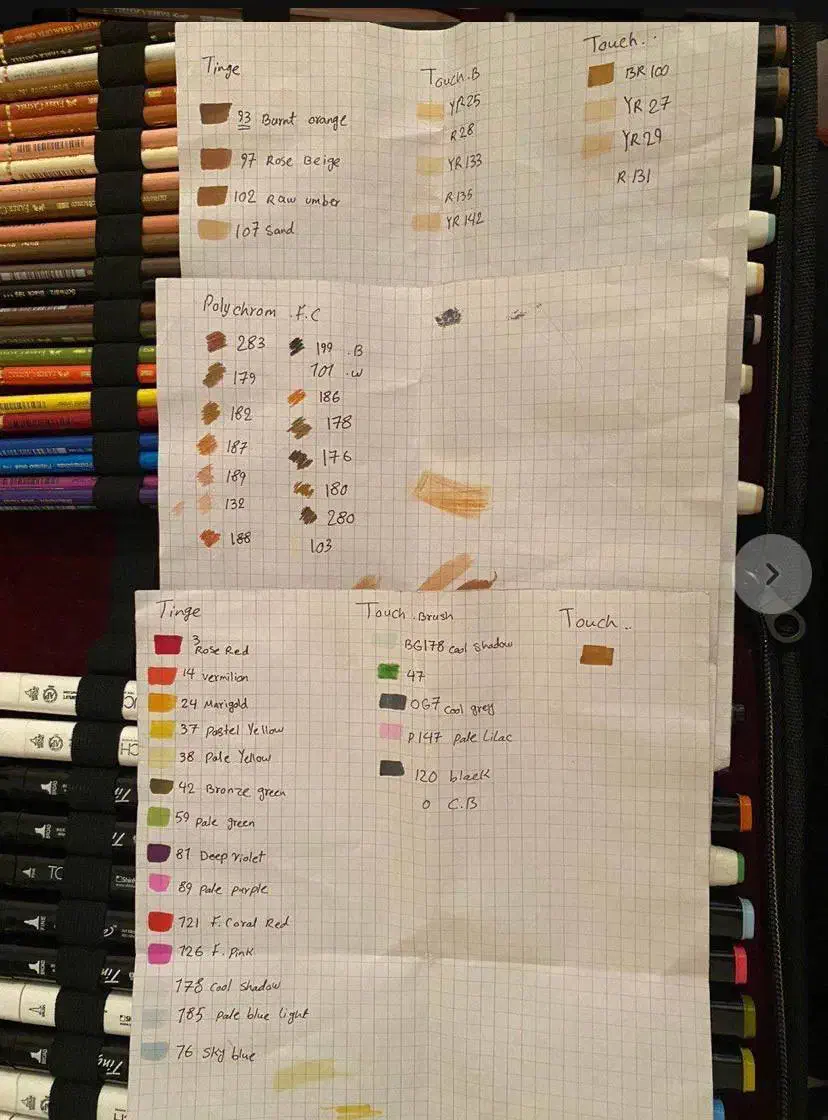 Tinge
93 Burnt orange
97 Rose Beige
102 Raw umber
107 Sand
Touch.B
YR25
R28
YR133
R135
YR142
Touch..
BR100
YR 27
YR29
R131
Polychrom .F.C
283
179
182
187
189
132
188
199 .B
101 .W
186
178
176
180
280
103
Tinge
3 Rose Red
14 vermilion
24 Marigold
37 Pastel Yellow
38 Pale Yellow
42 Bronze green
59 Pale green
81 Deep violet
89 Pale purple
121 F. Coral Red
126 F. Pink
178 Cool shadow
185 Pale blue light
76 Sky blue
Touch .Brush
BG178 Cool Shadow
47
0G7 Cool grey
P147 Pale Lilac
120 black
0 C.B
Touch..
Schwarz Black 199